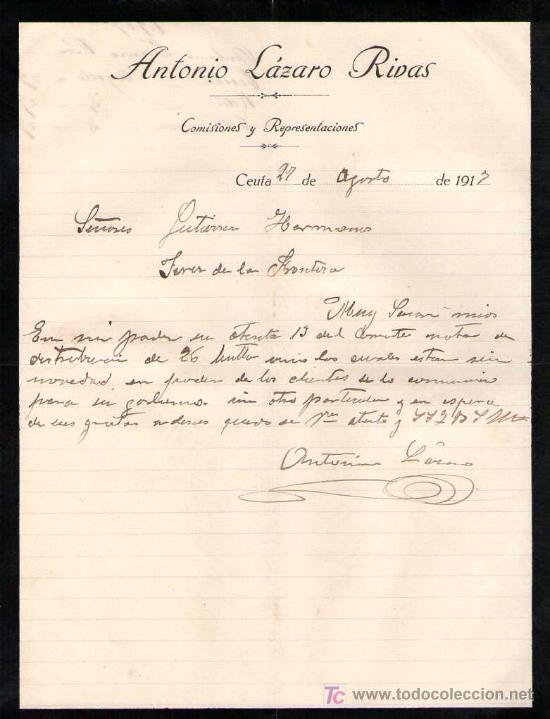 Antonio Lázaro Rivas
Comisiones y Representaciones
Ceuta 27 de Agosto de 1917
Señores Gutierrez Hermanos
Jerez de la Frontera
Muy Sres mios
En mi poder su atenta 13 del corriente nota de
distribucion de 26 bultos vino los cuales estan sin
novedad en poder de los clientes se lo comunico
para su gobierno sin otro particular y en espera
de sus gratas ordenes quedo de Vds atento y SSQBSM
Antonio Lázaro
todocoleccion
www.todocoleccion.net